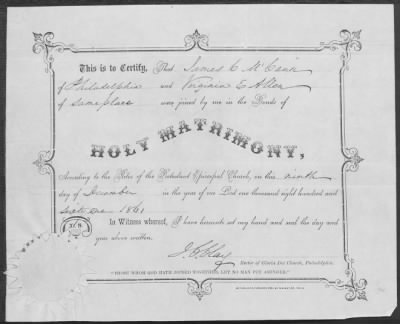 This is to Certify, That James C. McCann
of Philadelphia and Virginia E Allen
of Same place were joined by me in the Bonds of
HOLY MATRIMONY,
According to the Rites of the Protestant Episcopal Church, on this ninth
day of December in the year of our Lord one thousand eight hundred and
Sixty One 1861
In Witness whereof, I have hereunto set my hand and seal the day and
year above written.
J. C. Clay
Rector of Gloria Dei Church, Philadelphia.
"THOSE WHOM GOD HATH JOINED TOGETHER, LET NO MAN PUT ASUNDER."